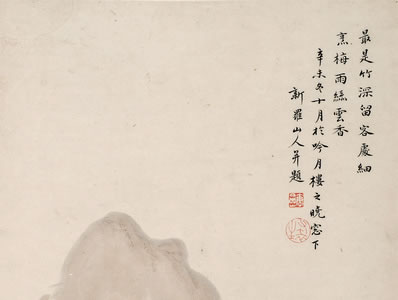 最是竹深留客處細
烹梅雨絲雲香
辛未冬十月於吟月樓之曉窓下
新羅山人并題